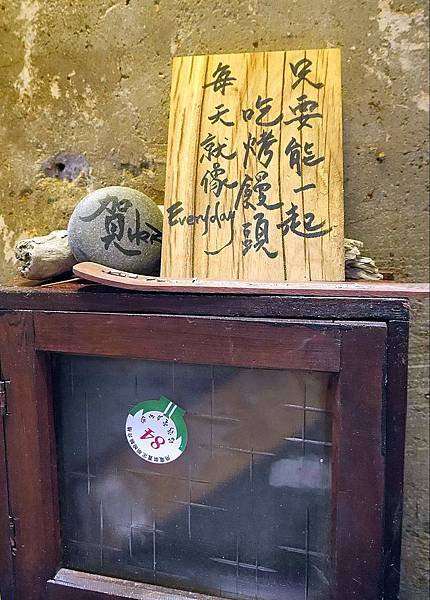 只要能一起
吃烤饅頭
每天就像
Everyday
賀
84